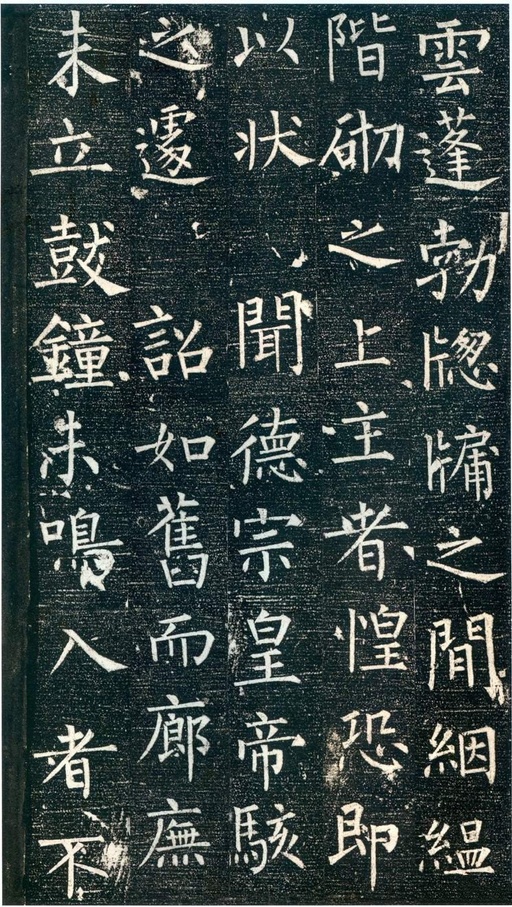 雲蓬勃牎牗之間絪縕
階砌之上主者惶恐即
以状聞德宗皇帝駭
之遽詔如舊而廊廡
未立鼓鐘未鳴入者不